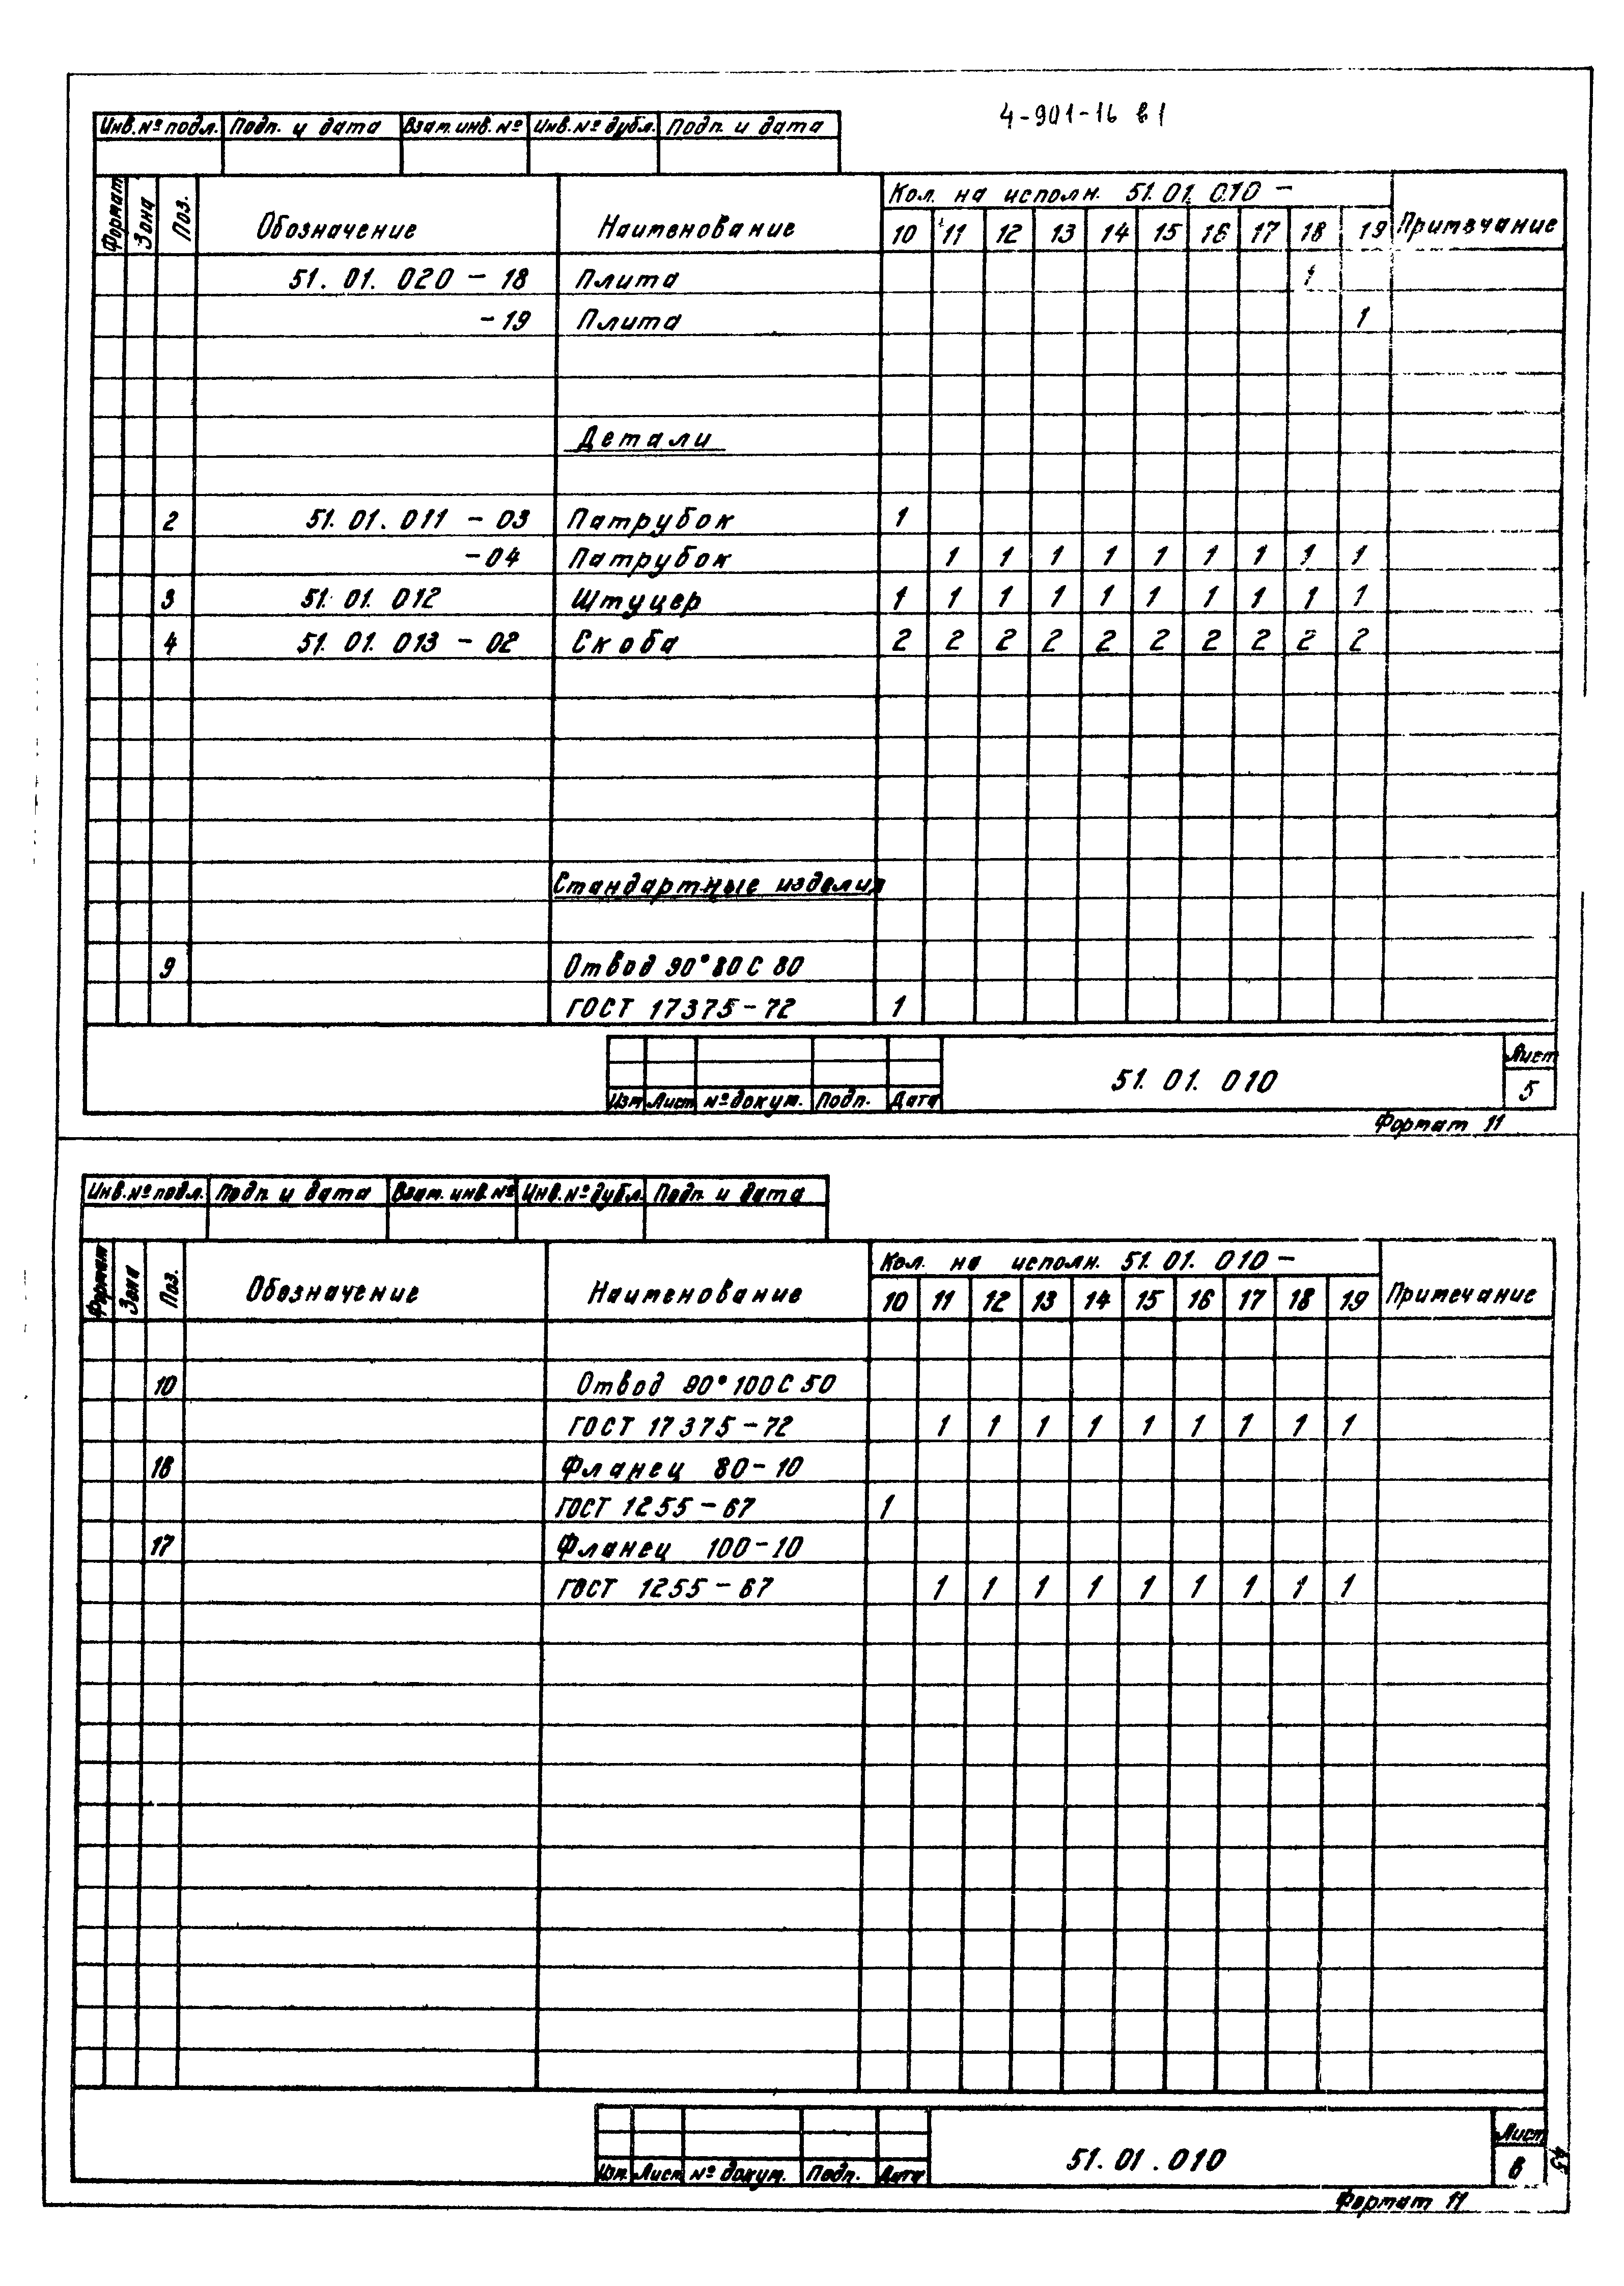 4-901-16 в1
Инв.№ подл. Подп. и дата Взам. инв. № Инв. № дубл. Подп. и дата
Формат Зона Поз. Обозначение Наименование Кол. на исполн. 51.01.010 — Примечание
10 11 12 13 14 15 16 17 18 19
51. 01. 020 - 18 Плита 1
-19 Плита 1
Детали
2 51. 01. 011 - 03 Патрубок 1
-04 Патрубок 1 1 1 1 1 1 1 1 1
3 51. 01. 012 Штуцер 1 1 1 1 1 1 1 1 1 1
4 51. 01. 013 - 02 Скоба 2 2 2 2 2 2 2 2 2 2
Стандартные изделия
9 Отвод 90° 80 С 80
ГОСТ 17375-72 1
Изм Лист № докум. Подп. Дата 51. 01. 010 Лист 5
Формат 11
Инв.№ подл. Подп. и дата Взам. инв. № Инв. № дубл. Подп. и дата
Формат Зона Поз. Обозначение Наименование Кол. на исполн. 51. 01. 010 — Примечание
10 11 12 13 14 15 16 17 18 19
10 Отвод 90° 100 С 50
ГОСТ 17375-72 1 1 1 1 1 1 1 1 1
16 Фланец 80-10
ГОСТ 1255-67 1
17 Фланец 100-10
ГОСТ 1255-67 1 1 1 1 1 1 1 1 1
Изм. Лист № докум. Подп. Дата 51. 01. 010 Лист 6
Формат 11
45